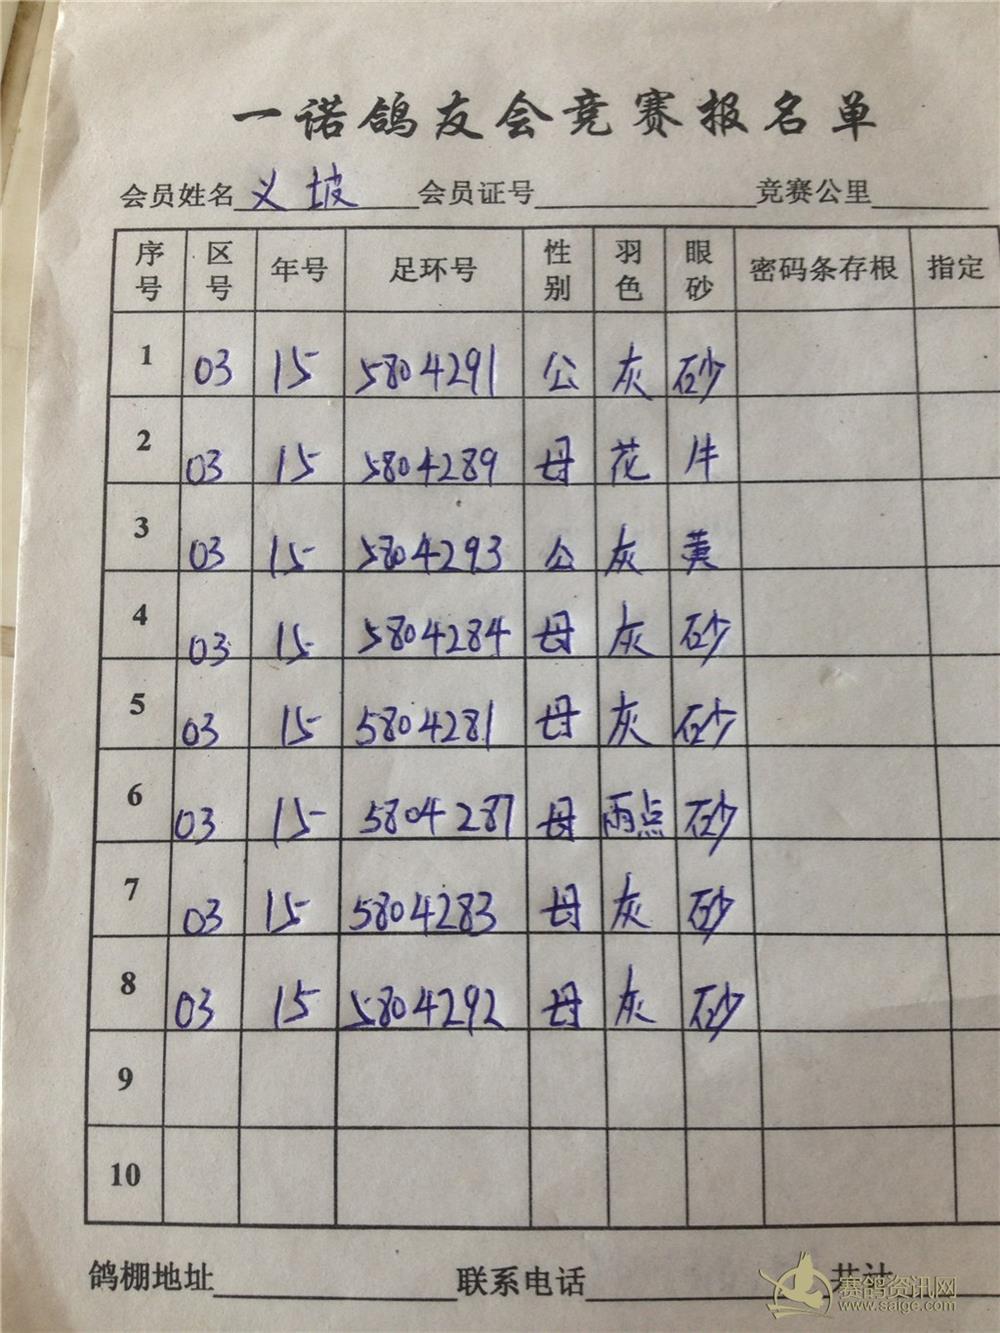 一诺鸽友会竞赛报名单
会员姓名 义坡 会员证号 竞赛公里
序号 区号 年号 足环号 性别 羽色 眼砂 密码条存根 指定
1 03 15 5804291 公 灰 砂
2 03 15 5804289 母 花 牛
3 03 15 5804293 公 灰 黄
4 03 15 5804284 母 灰 砂
5 03 15 5804281 母 灰 砂
6 03 15 5804287 母 雨点 砂
7 03 15 5804283 母 灰 砂
8 03 15 5804292 母 灰 砂
9
10
鸽棚地址 联系电话 共计
赛鸽资讯网
www.saige.com